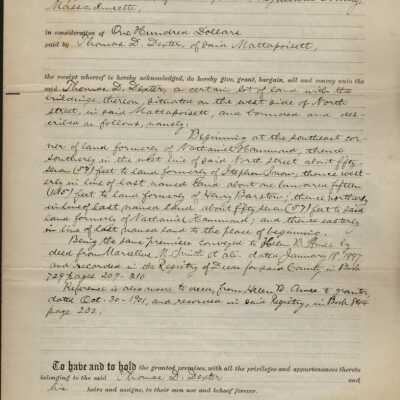 Massachusetts,
in consideration of One Hundred Dollars
paid by Thomas D. Dexter, of said Mattapoisett,
the receipt whereof is hereby acknowledged, do hereby give, grant, bargain, sell and convey unto the
said Thomas D. Dexter, a certain lot of land with the
buildings thereon, situated on the west side of North
street, in said Mattapoisett, and bounded and des-
cribed as follows, namely:
Beginning at the southeast cor-
ner of land formerly of Nathaniel Hammond, thence
southerly in the west line of said North street about fifty-
seven (57) feet to land formerly of Stephen Snow, thence west-
erly in line of last named land about one hundred fifteen
(115) feet to land formerly of Henry Barstow; thence northerly
in line of last named land about fifty seven (57) feet to said
land formerly of Nathaniel Hammond; and thence easterly
in line of last named land to the place of beginning.
Being the same premises conveyed to Helen D. Ames by
deed from Marcellus M. Smith et ali. dated January 18, 1897
and recorded in the Registry of Deeds for said County in Book
729 pages 209-210.
Reference is also made to deed from Helen D. Ames to grantor,
dated Oct. 30-1901, and recorded in said Registry, in Book
page 202.
To have and to hold the granted premises, with all the privileges and appurtenances thereto
belonging to the said Thomas D. Dexter and
his heirs and assigns, to their own use and behoof forever.